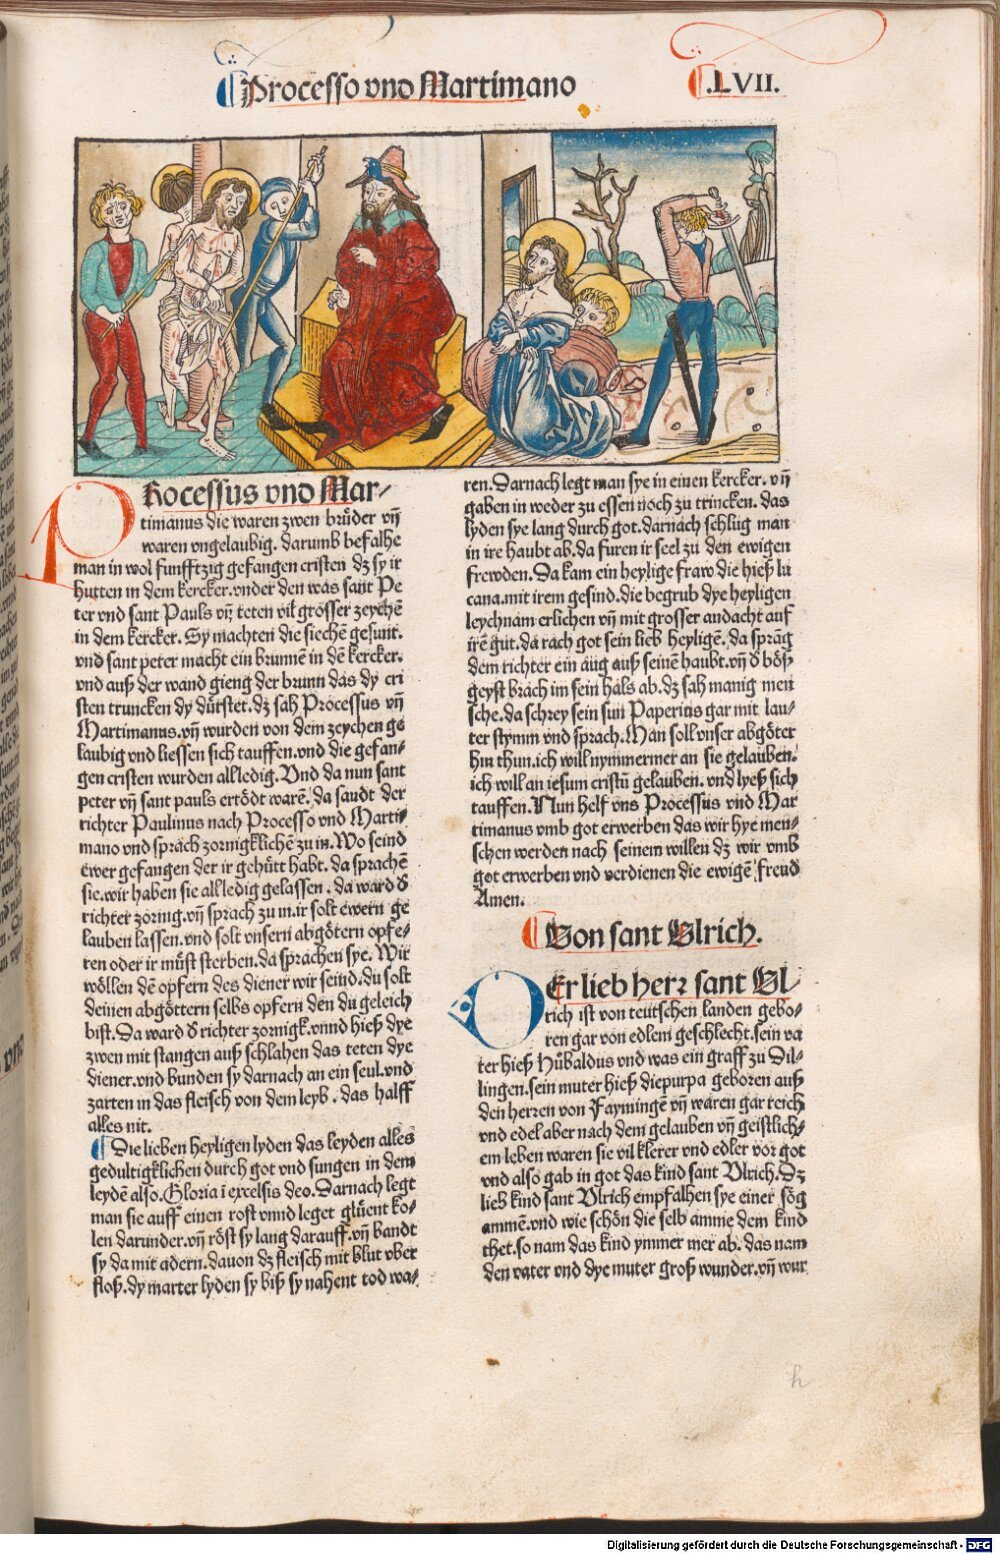 Processo vnd Martimano
.LVII.
PRocessus vnd Mar⸗
timanus die waren zwen brůder vñ
waren vngelaubig. darumb befalhe
man in wol funfftzig gefangen cristen dz sy ir
hutten in dem kercker. vnder den was sant Pe
ter vnd sant Pauls vñ teten vil grösser zeychē
in dem kercker. Sy machten die siechē gesunt.
vnd sant peter macht ein brunnē in dē kercker.
vnd auß der wand gieng der brunn das dy cri
sten truncken dy důrster. dz sah Processus vñ
Martimanus. vñ wurden von dem zeychen ge
laubig vnd liessen sich tauffen. vnd die gefan⸗
gen cristen wurden all ledig. Vnd da nun sant
peter vñ sant pauls ertödt warē. da sandt der
richter Paulinus nach Processo vnd Marti⸗
mano vnd sprach zornigklichē zu in. Wo seind
ewer gefangen der ir gehůtt habt. da sprachē
sie. wir haben sie all ledig gelassen. da ward d̕
richter zornig. vñ sprach zu in. ir solt ewern ge
lauben lassen. vnd solt vnsern abgötern opfe⸗
ren oder ir můst sterben. da sprachen sye. Wir
wöllen dē opfern des diener wir seind. du solt
deinen abgöttern selbs opfern den du geleich
bist. Da ward d̕ richter zornigk. vnnd hieß dye
zwen mit stangen auß schlahen das teten dye
diener. vnd bunden sy darnach an ein seul. vnd
zarten in das fleisch von dem leyb. das halff
alles nit.
Die lieben heyligen lyden das leyden alles
gedultigklichen durch got vnd sungen in dem
leydē also. Gloria ī excelsis deo. Darnach legt
man sie auff einen rost vnnd leget glůent ko⸗
len darunder. vñ röst sy lang darauff. vñ bandt
sy da mit adern. dauon dz fleisch mit blut vber
floß. dy marter lyden sy biß sy nahent tod wa⸗
ren. Darnach legt man sye in einen kercker. vñ
gaben in weder zu essen noch zu trincken. das
lyden sye lang durch got. darnach schlůg man
in ire haubt ab. da furen ir seel zu den ewigen
frewden. Da kam ein heylige fraw die hieß lu
cana. mit irem gesind. die begrub dye heyligen
leychnam erlichen vñ mit grosser andacht auf
irē gut. da rach got sein lieb heyligē. da sprāg
dem richter ein aug auß seinē haubt. vñ d̕ böß
geyst brach im sein hals ab. dz sah manig men
sche. da schrey sein sun Paperius gar mit lau⸗
ter stymm vnd sprach. Man soll vnser abgöter
hin thun. ich will nymmermer an sie gelauben.
ich will an iesum cristū gelauben. vnd lyeß sich
tauffen. Nun helf vns Processus vnd Mar
timanus vmb got erwerben das wir hye men⸗
schen werden nach seinem willen dz wir vmb
got erwerben vnd verdienen die ewigē freud
Amen.
Von sant Vlrich.
DEr lieb herr sant Vl⸗
rich ist von teutschen landen gebo⸗
ren gar von edlem geschlecht. sein va
ter hieß Hůbaldus vnd was ein graff zu Dil⸗
lingen. sein muter hieß diepurpa geboren auß
den herren von Faymingē vñ waren gar reich
vnd edel aber nach dem gelauben vñ geistlich⸗
em leben waren sie vil klerer vnd edler vor got
vnd also gab in got das kind sant Vlrich. Dz
lieb kind sant Vlrich empfalhen sye einer sög
ammē. vnd wie schön die selb amme dem kind
thet. so nam das kind ymmer mer ab. das nam
den vater vnd dye muter groß wunder. vñ wur
h
Digitalisierung gefördert durch die Deutsche Forschungsgemeinschaft - DFG